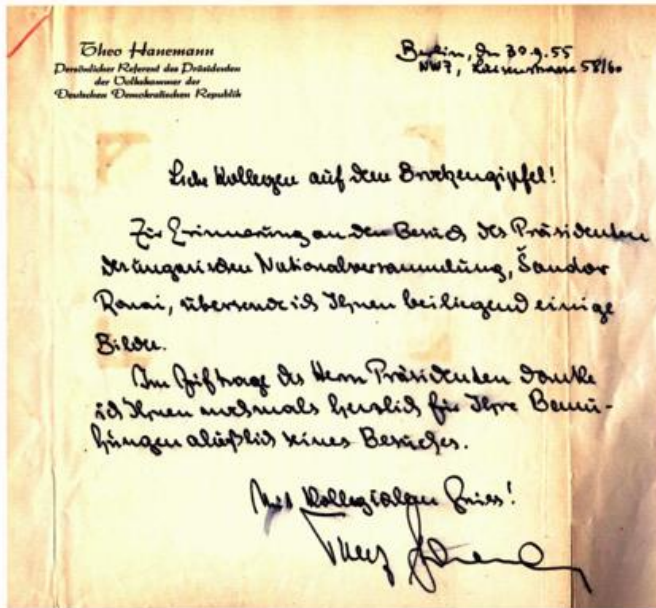 Theo Hanemann
Persönlicher Referent des Präsidenten
der Volkskammer der
Deutschen Demokratischen Republik
Berlin, den 30.9.55
NW7, Luisenstrasse 58/60
Liebe Kollegen auf dem Brockengipfel!
Zur Erinnerung an den Besuch des Präsidenten
der ungarischen Nationalversammlung, Šandor
Ronai, übersende ich Ihnen beiliegend einige
Bilder.
Im Auftrage des Herrn Präsidenten danke
ich Ihnen nochmals herzlich für Ihre Bemü-
hungen aläßlich seines Besuches.
Mit Kollegialen Gruss!